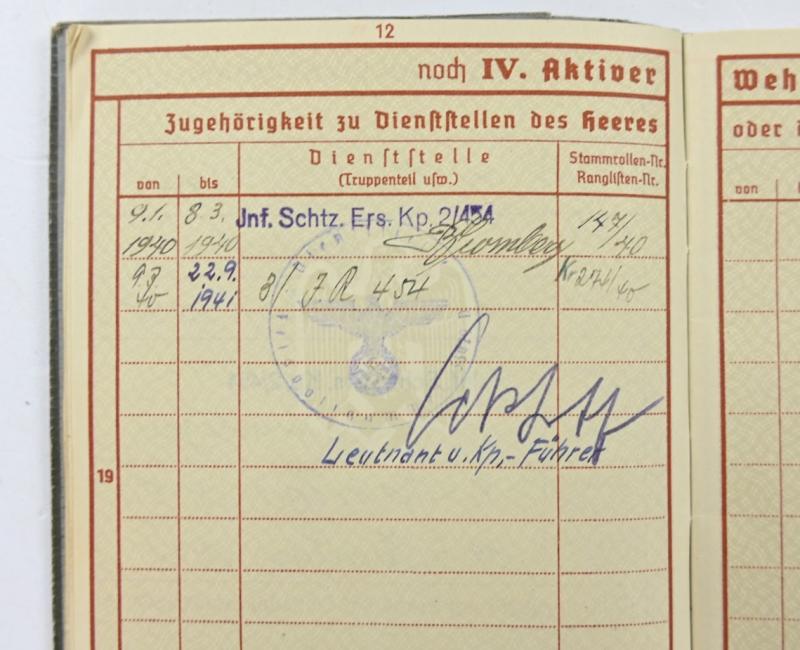 12
noch IV. Aktiver
Zugehörigkeit zu Dienststellen des Heeres
von bis Dienststelle (Truppenteil usw.) Stammrollen-Nr. Ranglisten-Nr.
9.1. 1940 8.3. 1940 Jnf. Schtz. Ers. Kp. 2/454 147/40
9.3 40 22.9. 1941 8/ J.R 454
Leutnant u. Kp,- Führer
19
Weh
oder i
von